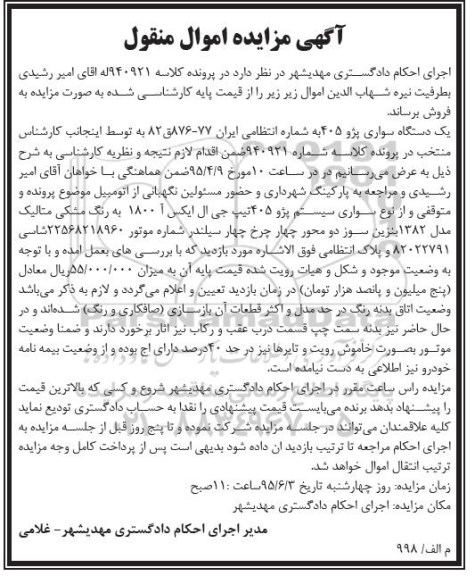 آگهی مزایده اموال منقول
اجرای احکام دادگستری مهدیشهر در نظر دارد در پرونده کلاسه ۹۴۰۹۲۱له اقای امیر رشیدی
بطرفیت نیره شهاب الدین اموال زیر زیر را از قیمت پایه کارشناسی شده به صورت مزایده به
فروش برساند.
یک دستگاه سواری پژو ۴۰۵به شماره انتظامی ایران ۷۷-۸۷۶ق۸۲ به توسط اینجانب کارشناس
منتخب در پرونده کلاسه شماره ۹۴۰۹۲۱ضمن اقدام لازم نتیجه و نظریه کارشناسی به شرح
ذیل به عرض می‌رسانیم در در ساعت ۱۰مورخ ۹۵/۴/۹ضمن هماهنگی با خواهان آقای امیر
رشیدی و مراجعه به پارکینگ شهرداری و حضور مسئولین نگهبانی از اتومبیل موضوع پرونده و
متوقفی و از نوع سواری سیستم پژو ۴۰۵تیپ جی ال ایکس آ ۱۸۰۰ به رنگ مشکی متالیک
مدل ۱۳۸۲بنزین سوز دو محور چهار چرخ چهار سیلندر شماره موتور ۲۲۵۶۸۲۱۸۹۶۰شاسی
۸۲۰۲۲۷۹۱ و پلاک انتظامی فوق الاشاره مورد بازدید که با بررسی های بعمل امده و با توجه
به وضعیت موجود و شکل و هیات رویت شده قیمت پایه آن به میزان ۵۵/۰۰۰/۰۰۰ریال معادل
(پنج میلیون و پانصد هزار تومان) در زمان بازدید تعیین و اعلام می‌گردد و لازم به ذکر می‌باشد
وضعیت اتاق بدنه رنگ در حد مدل و اکثر قطعات آن بازسازی (صافکاری و رنگ) شده‌اند و در
حال حاضر نیز بدنه سمت چپ قسمت درب عقب و رکاب نیز اثار برخورد دارند و ضمنا وضعیت
موتور بصورت خاموش رویت و تایرها نیز در حد ۴۰درصد دارای اج بوده و از وضعیت بیمه نامه
خودرو نیز اطلاعی به دست نیامده است.
مزایده راس ساعت مقرر در اجرای احکام دادگستری مهدیشهر شروع و کسی که بالاترین قیمت
را پیشنهاد بدهد برنده می‌بایست قیمت پیشنهادی را نقدا به حساب دادگستری تودیع نماید
کلیه علاقمندان می‌توانند در جلسه مزایده شرکت نموده و تا پنج روز قبل از جلسه مزایده به
اجرای احکام مراجعه تا ترتیب بازدید ان داده شود بدیهی است پس از پرداخت کامل وجه مزایده
ترتیب انتقال اموال خواهد شد.
زمان مزایده: روز چهارشنبه تاریخ ۹۵/۶/۳ساعت :۱۱صبح
مکان مزایده: اجرای احکام دادگستری مهدیشهر
مدیر اجرای احکام دادگستری مهدیشهر- غلامی
م الف/ ۹۹۸